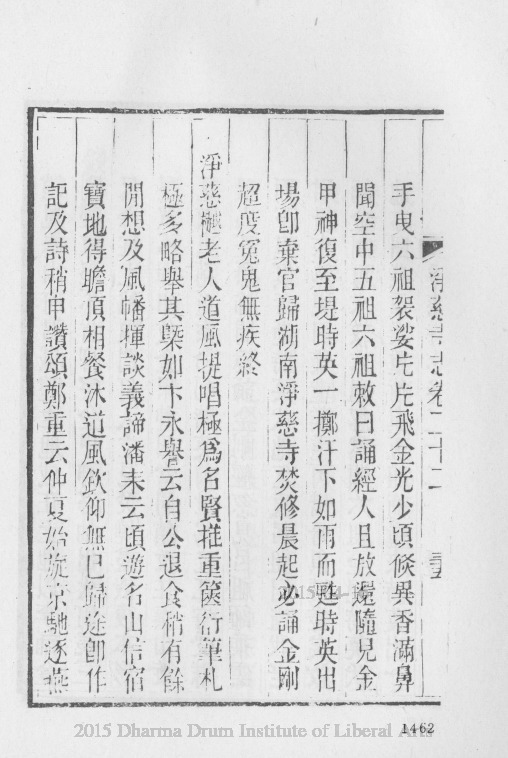 淨慈寺志卷二十二
手曳六祖袈裟片片飛金光少頃倐異香滿鼻
聞空中五祖六祖敕曰誦經人且放還隨見金
甲神復至堤時英一擲汗下如雨而甦時英出
場卽棄官歸湖南淨慈寺焚修晨起必誦金剛
超度冤鬼無疾終
淨慈樾老人道風提唱極爲名賢推重篋衍筆札
極多略舉其槩如卞永譽云自公退食稍有餘
閒想及風幡揮談義諦潘耒云頃遊名山信宿
寶地得瞻頂相餐沐道風欽仰無已歸途卽作
記及詩稍申讚頌鄭重云仲夏始旋京馳逐燕
2015 Dharma Drum Institute of Liberal Arts
1462